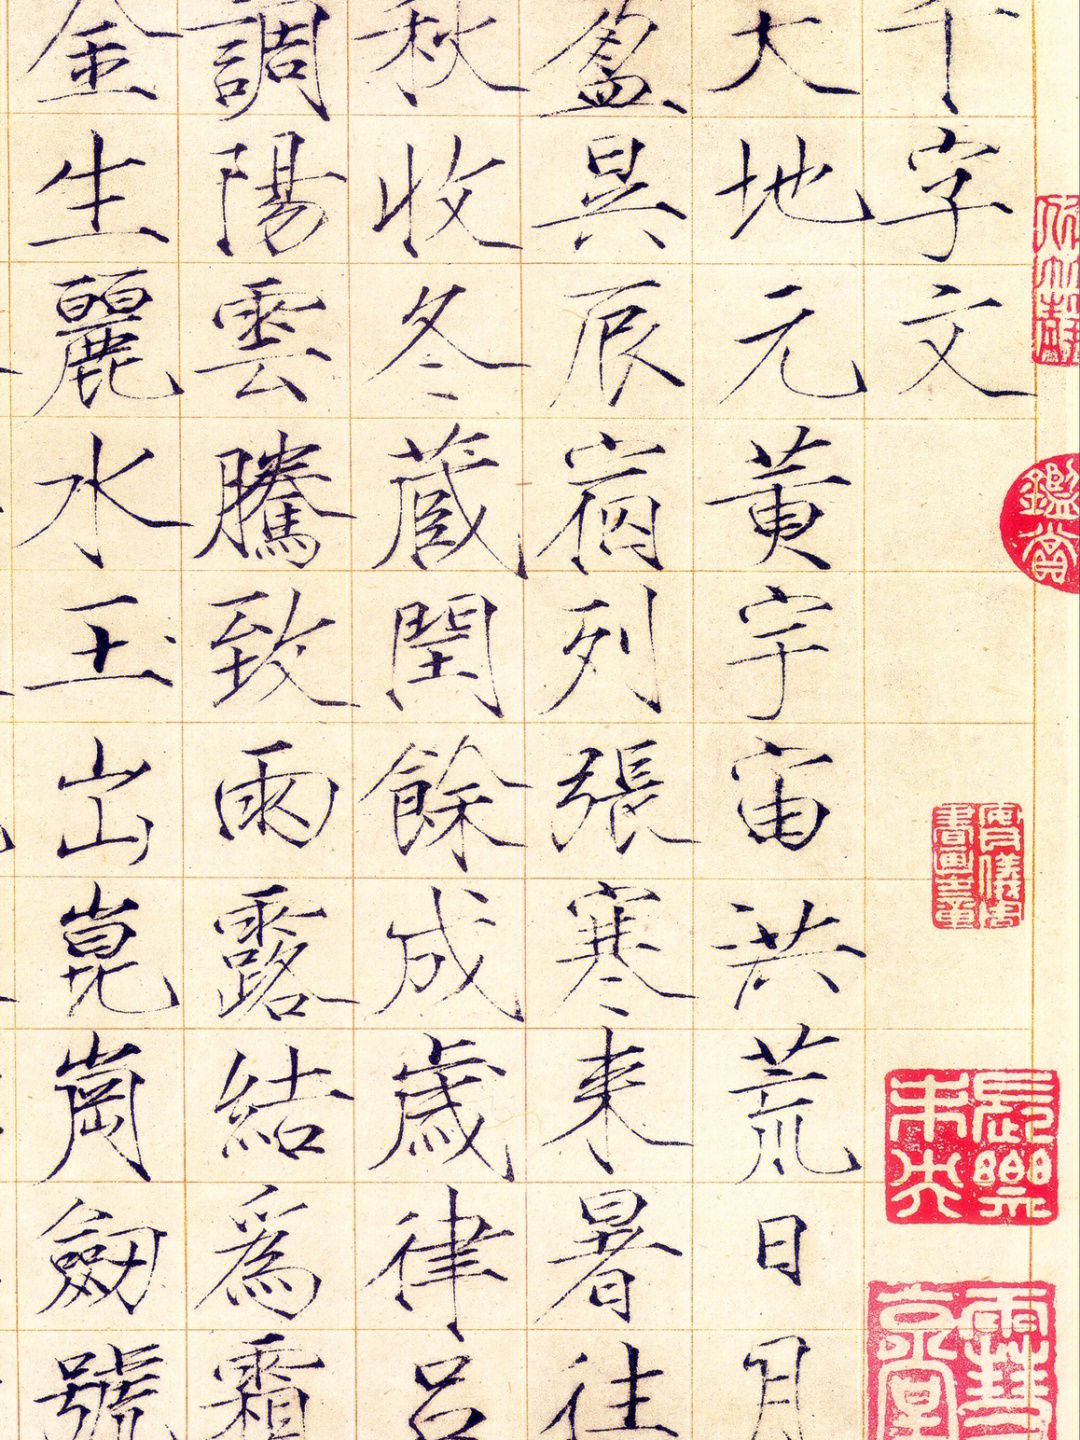 千字文
天地元黃宇宙洪荒日月
盈昃辰宿列張寒来暑往
秋收冬蔵閏餘成歲律呂
調陽雲騰致雨露結爲霜
金生麗水玉出崑崗劒號
鑑賞